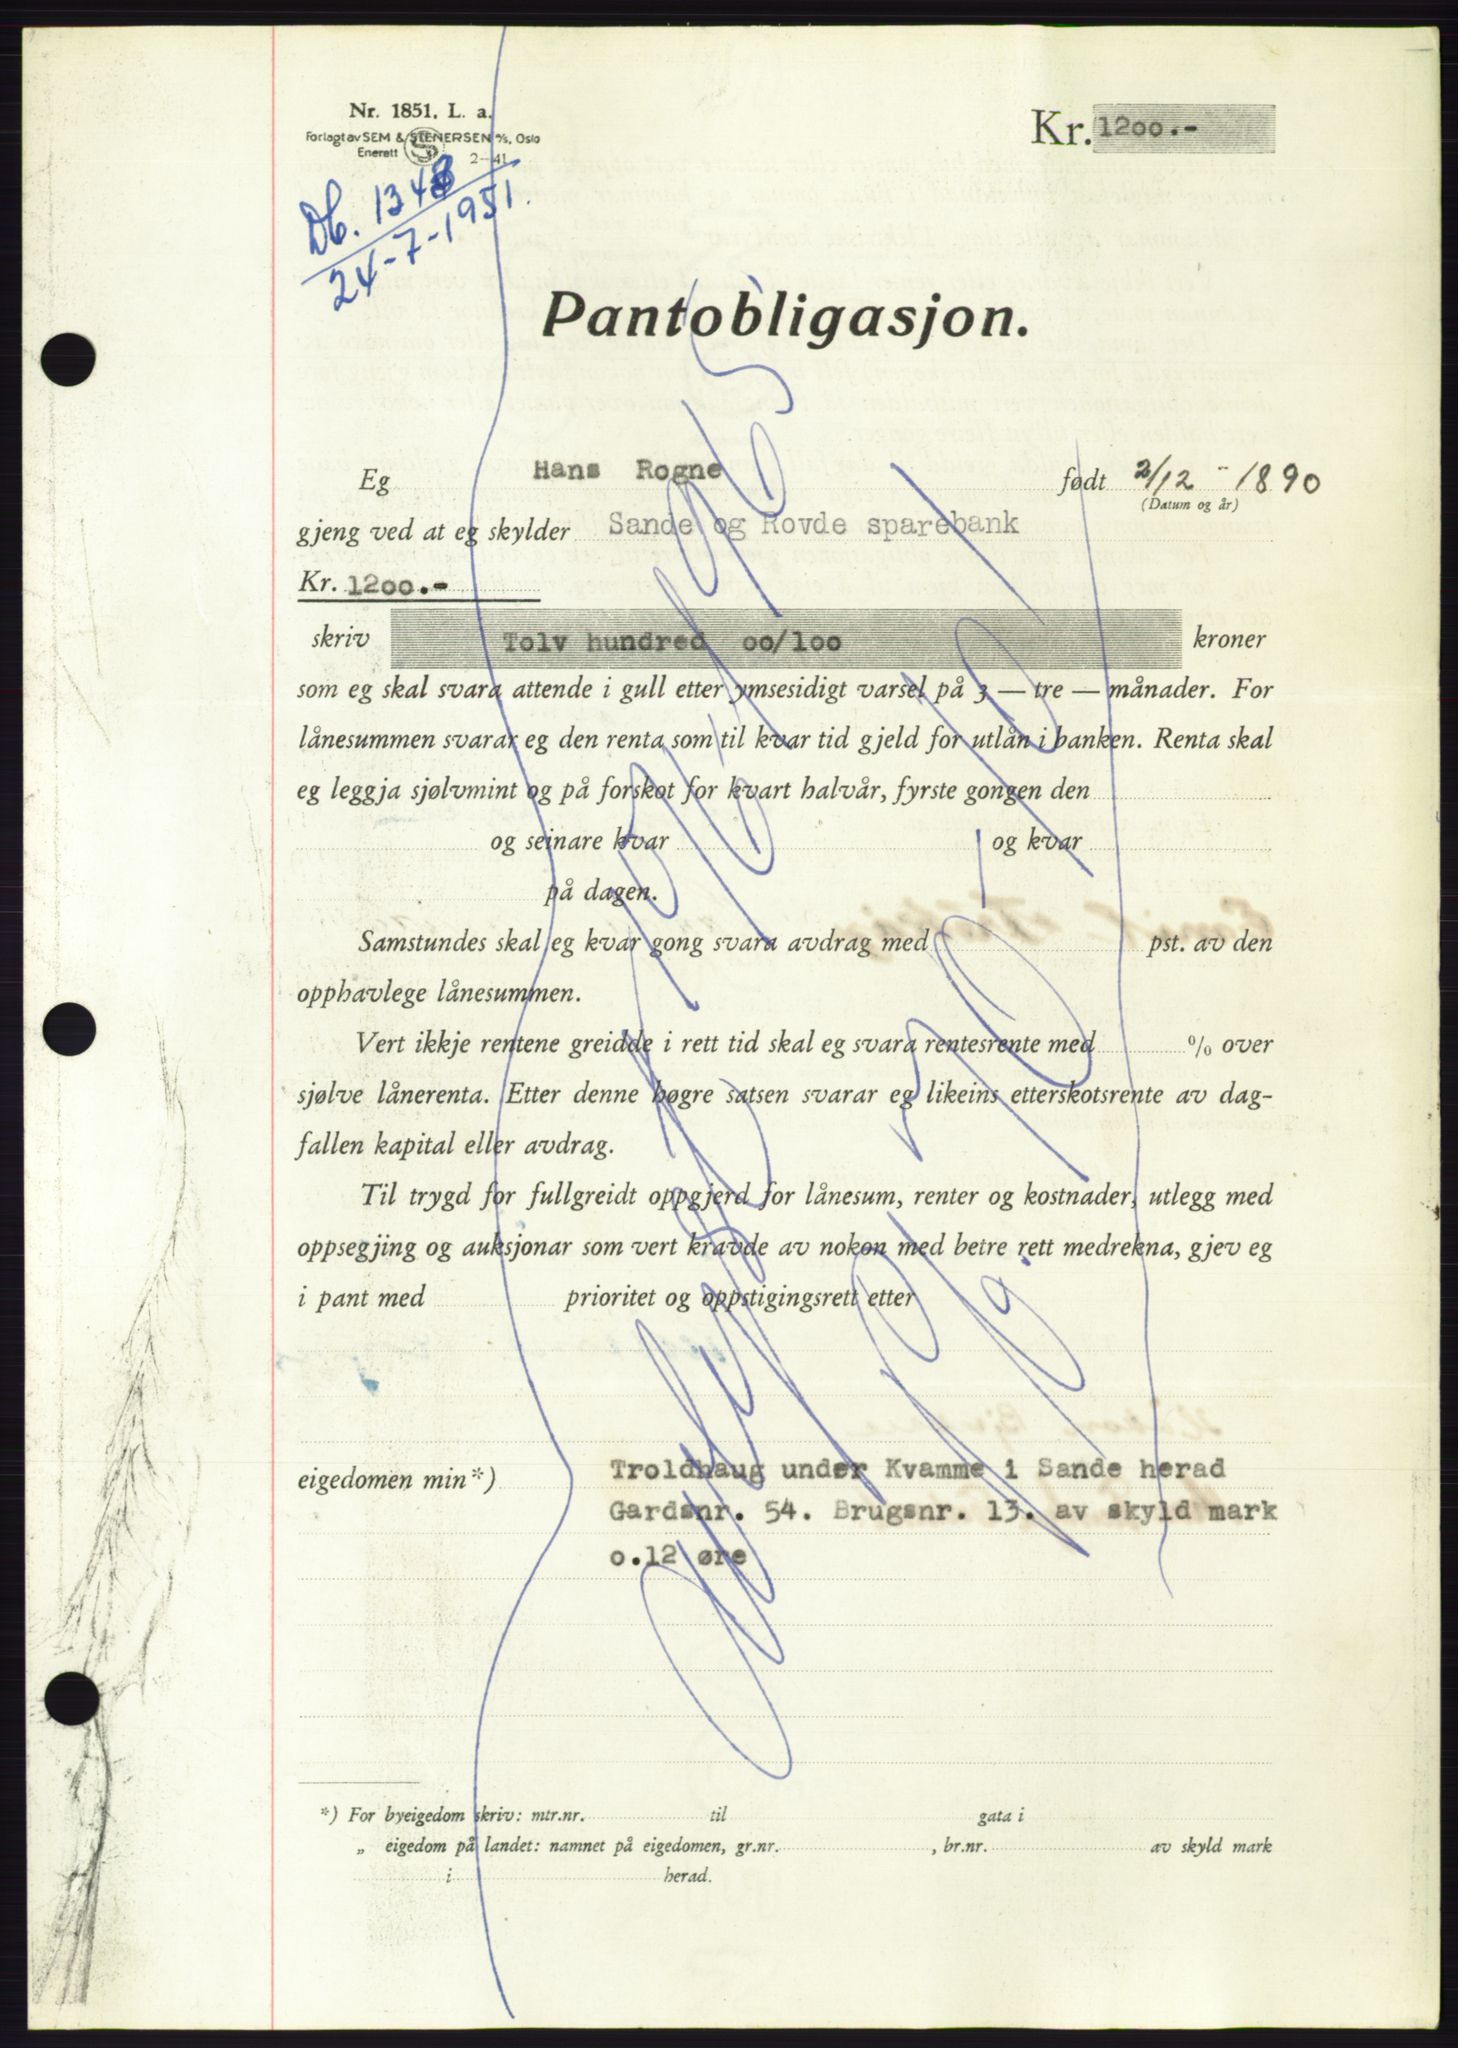 Nr. 1851. L. a.
Forlagt av SEM & STENERSEN A/S, Oslo
Enerett S 2-41
Kr. 1200.-
Db. 1348
24-7-1951.
Pantobligasjon.
Eg Hans Rogne født 2/12 - 1890
(Datum og år)
gjeng ved at eg skylder Sande og Rovde sparebank
Kr. 1200.-
skriv Tolv hundred oo/loo kroner
som eg skal svara attende i gull etter ymsesidigt varsel på 3 — tre — månader. For
lånesummen svarar eg den renta som til kvar tid gjeld for utlån i banken. Renta skal
eg leggja sjølvmint og på forskot for kvart halvår, fyrste gongen den
og seinare kvar og kvar
på dagen.
Samstundes skal eg kvar gong svara avdrag med pst. av den
opphavlege lånesummen.
Vert ikkje rentene greidde i rett tid skal eg svara rentesrente med % over
sjølve lånerenta. Etter denne høgre satsen svarar eg likeins etterskotsrente av dag-
fallen kapital eller avdrag.
Til trygd for fullgreidt oppgjerd for lånesum, renter og kostnader, utlegg med
oppsegjing og auksjonar som vert kravde av nokon med betre rett medrekna, gjev eg
i pant med prioritet og oppstigingsrett etter
eigedomen min*) Troldhaug under Kvamme i Sande herad
Gardsnr. 54. Brugsnr. 13. av skyld mark
o.12 øre
*) For byeigedom skriv: mtr.nr. til gata i
„ eigedom på landet: namnet på eigedomen, gr.nr. , br.nr. av skyld mark
i herad.